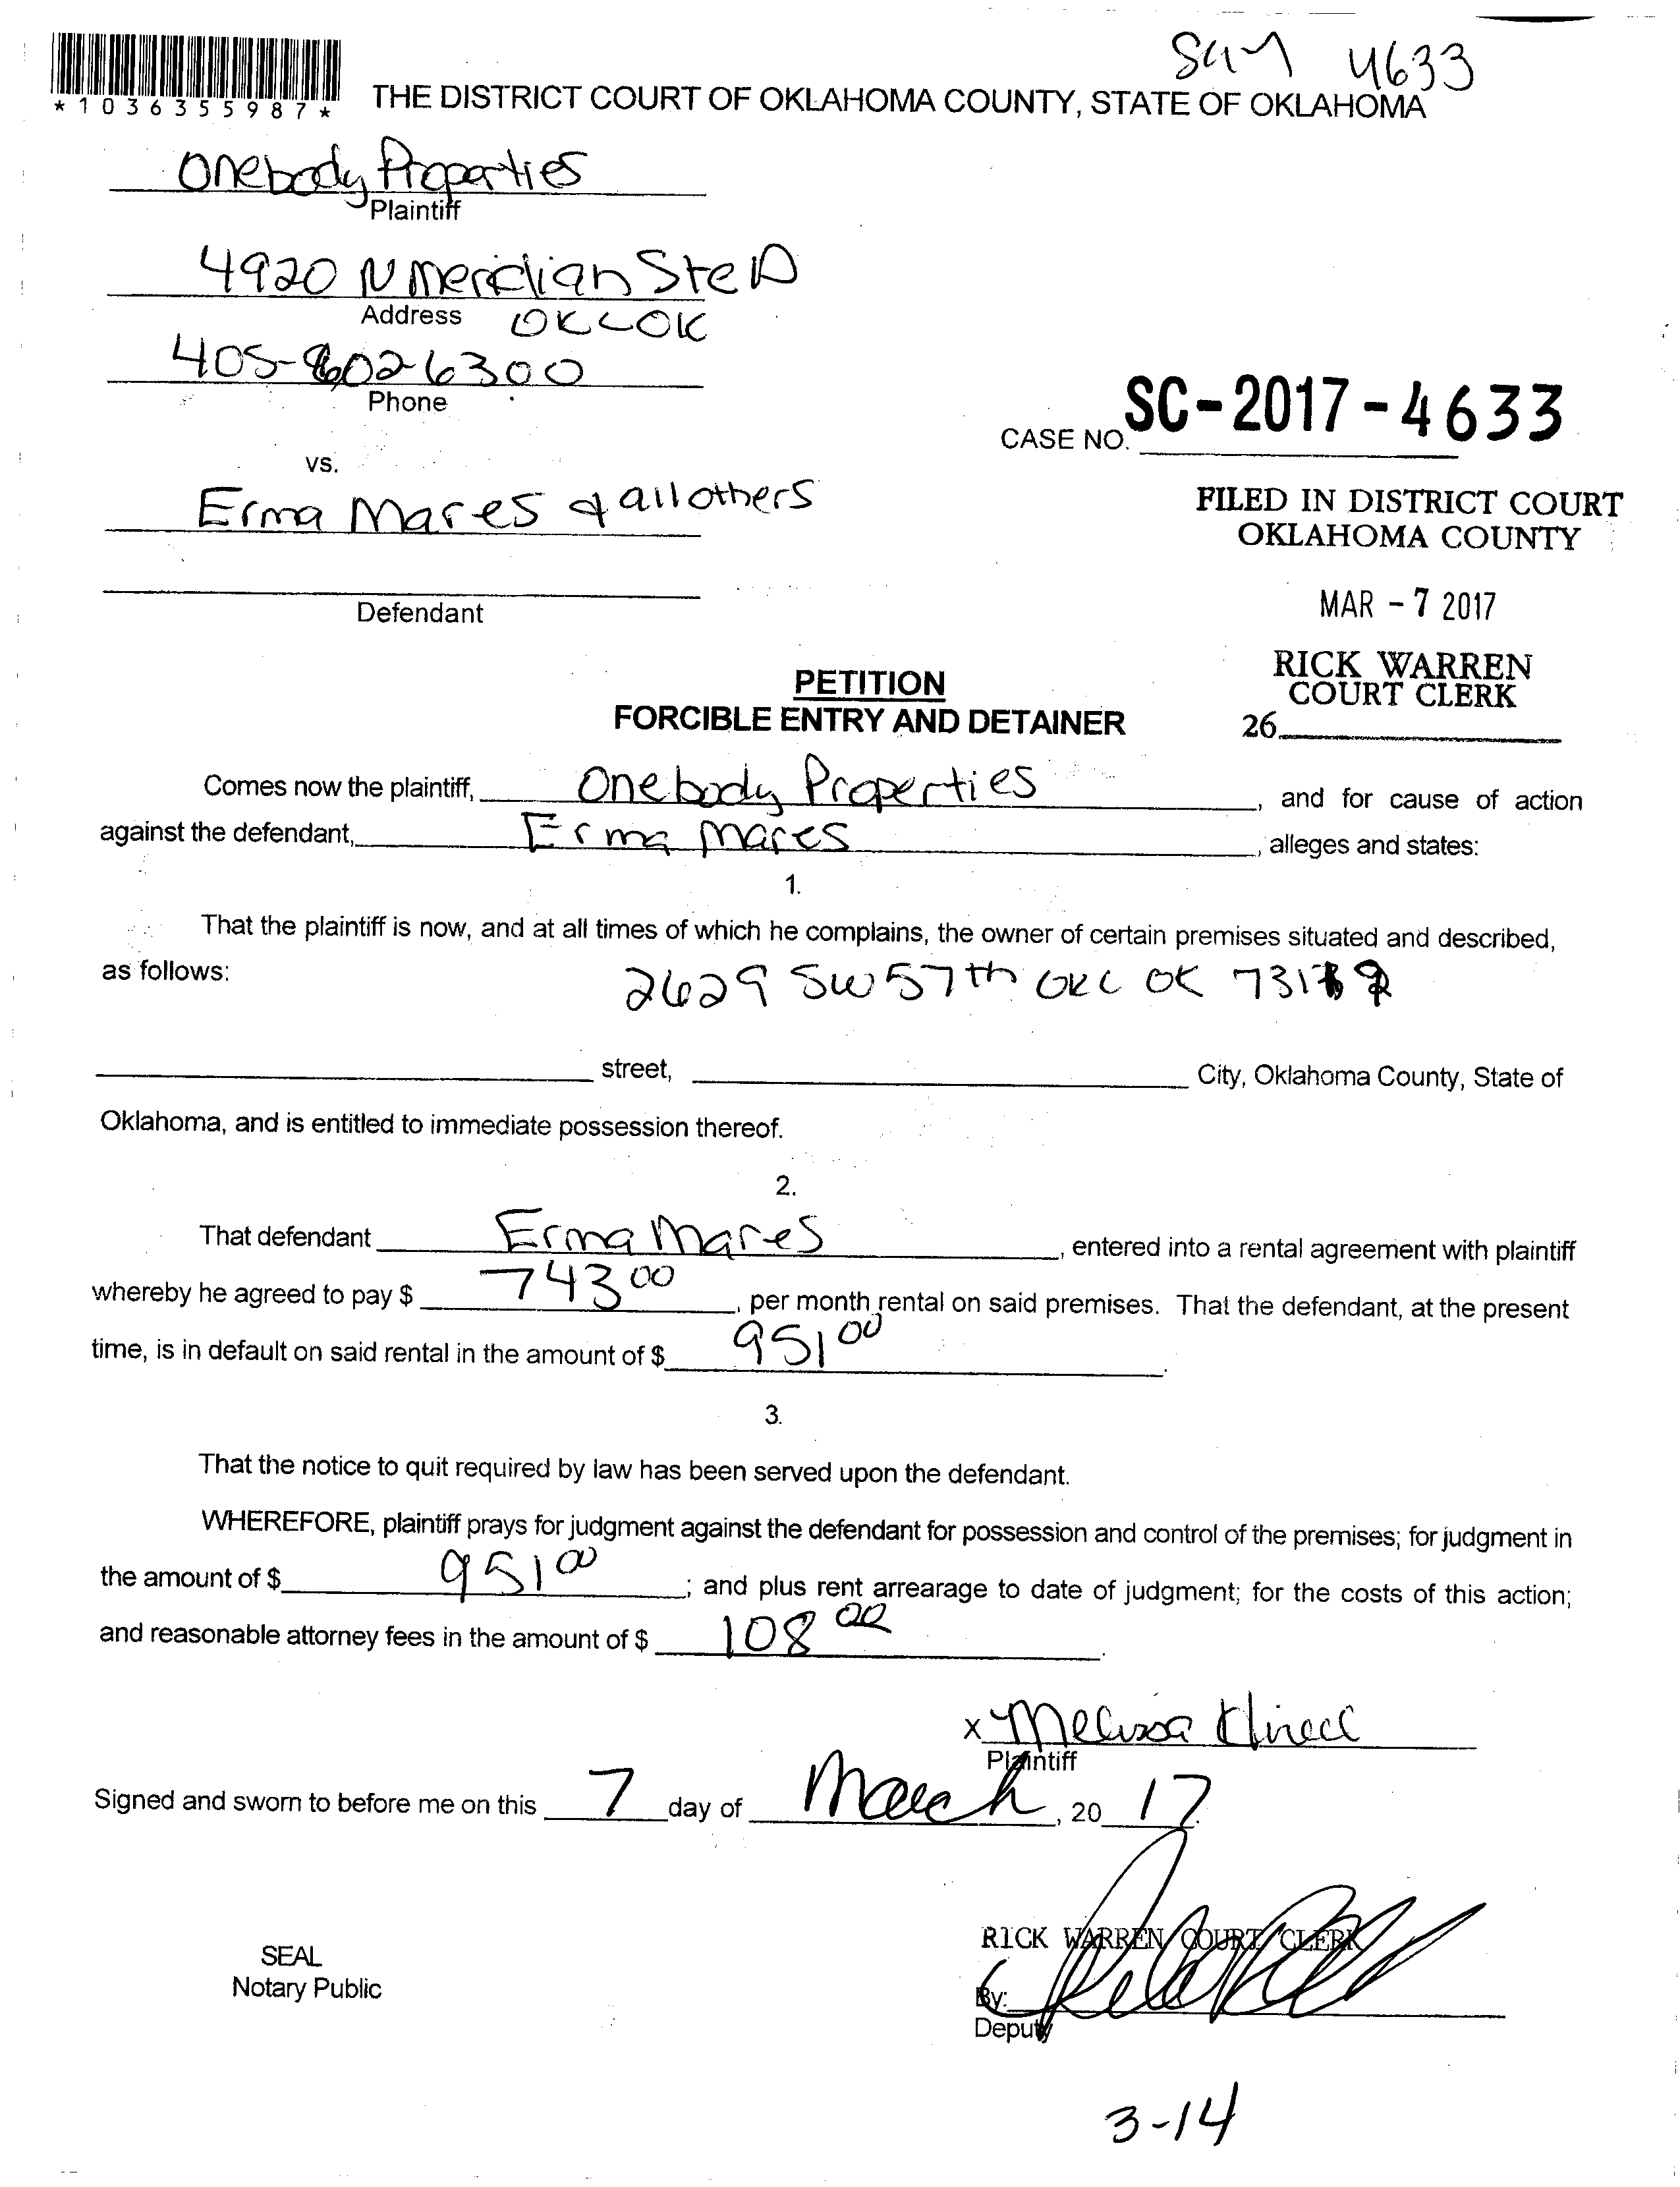 4633
*1036355987*
THE DISTRICT COURT OF OKLAHOMA COUNTY, STATE OF OKLAHOMA
Onebody Properties
Plaintiff
4920 N Meridian Ste D
Address OKC OK
405-602-6300
Phone
CASE NO. SC-2017-4633
vs.
Erma Mares & all others
FILED IN DISTRICT COURT
OKLAHOMA COUNTY
Defendant
MAR - 7 2017
RICK WARREN
COURT CLERK
26
PETITION
FORCIBLE ENTRY AND DETAINER
Comes now the plaintiff, Onebody Properties, and for cause of action
against the defendant, Erma Mares, alleges and states:
1.
That the plaintiff is now, and at all times of which he complains, the owner of certain premises situated and described,
as follows: 2629 SW 57th OKC OK
street, City, Oklahoma County, State of
Oklahoma, and is entitled to immediate possession thereof.
2.
That defendant Erma Mares, entered into a rental agreement with plaintiff
whereby he agreed to pay $ 743 00, per month rental on said premises. That the defendant, at the present
time, is in default on said rental in the amount of $ 951 00.
3.
That the notice to quit required by law has been served upon the defendant.
WHEREFORE, plaintiff prays for judgment against the defendant for possession and control of the premises; for judgment in
the amount of $ 951 00; and plus rent arrearage to date of judgment; for the costs of this action;
and reasonable attorney fees in the amount of $ 108 00.
x Melissa
Plaintiff
Signed and sworn to before me on this 7 day of March, 20 17.
RICK WARREN COURT CLERK
SEAL
Notary Public
By:
Deputy
3-14